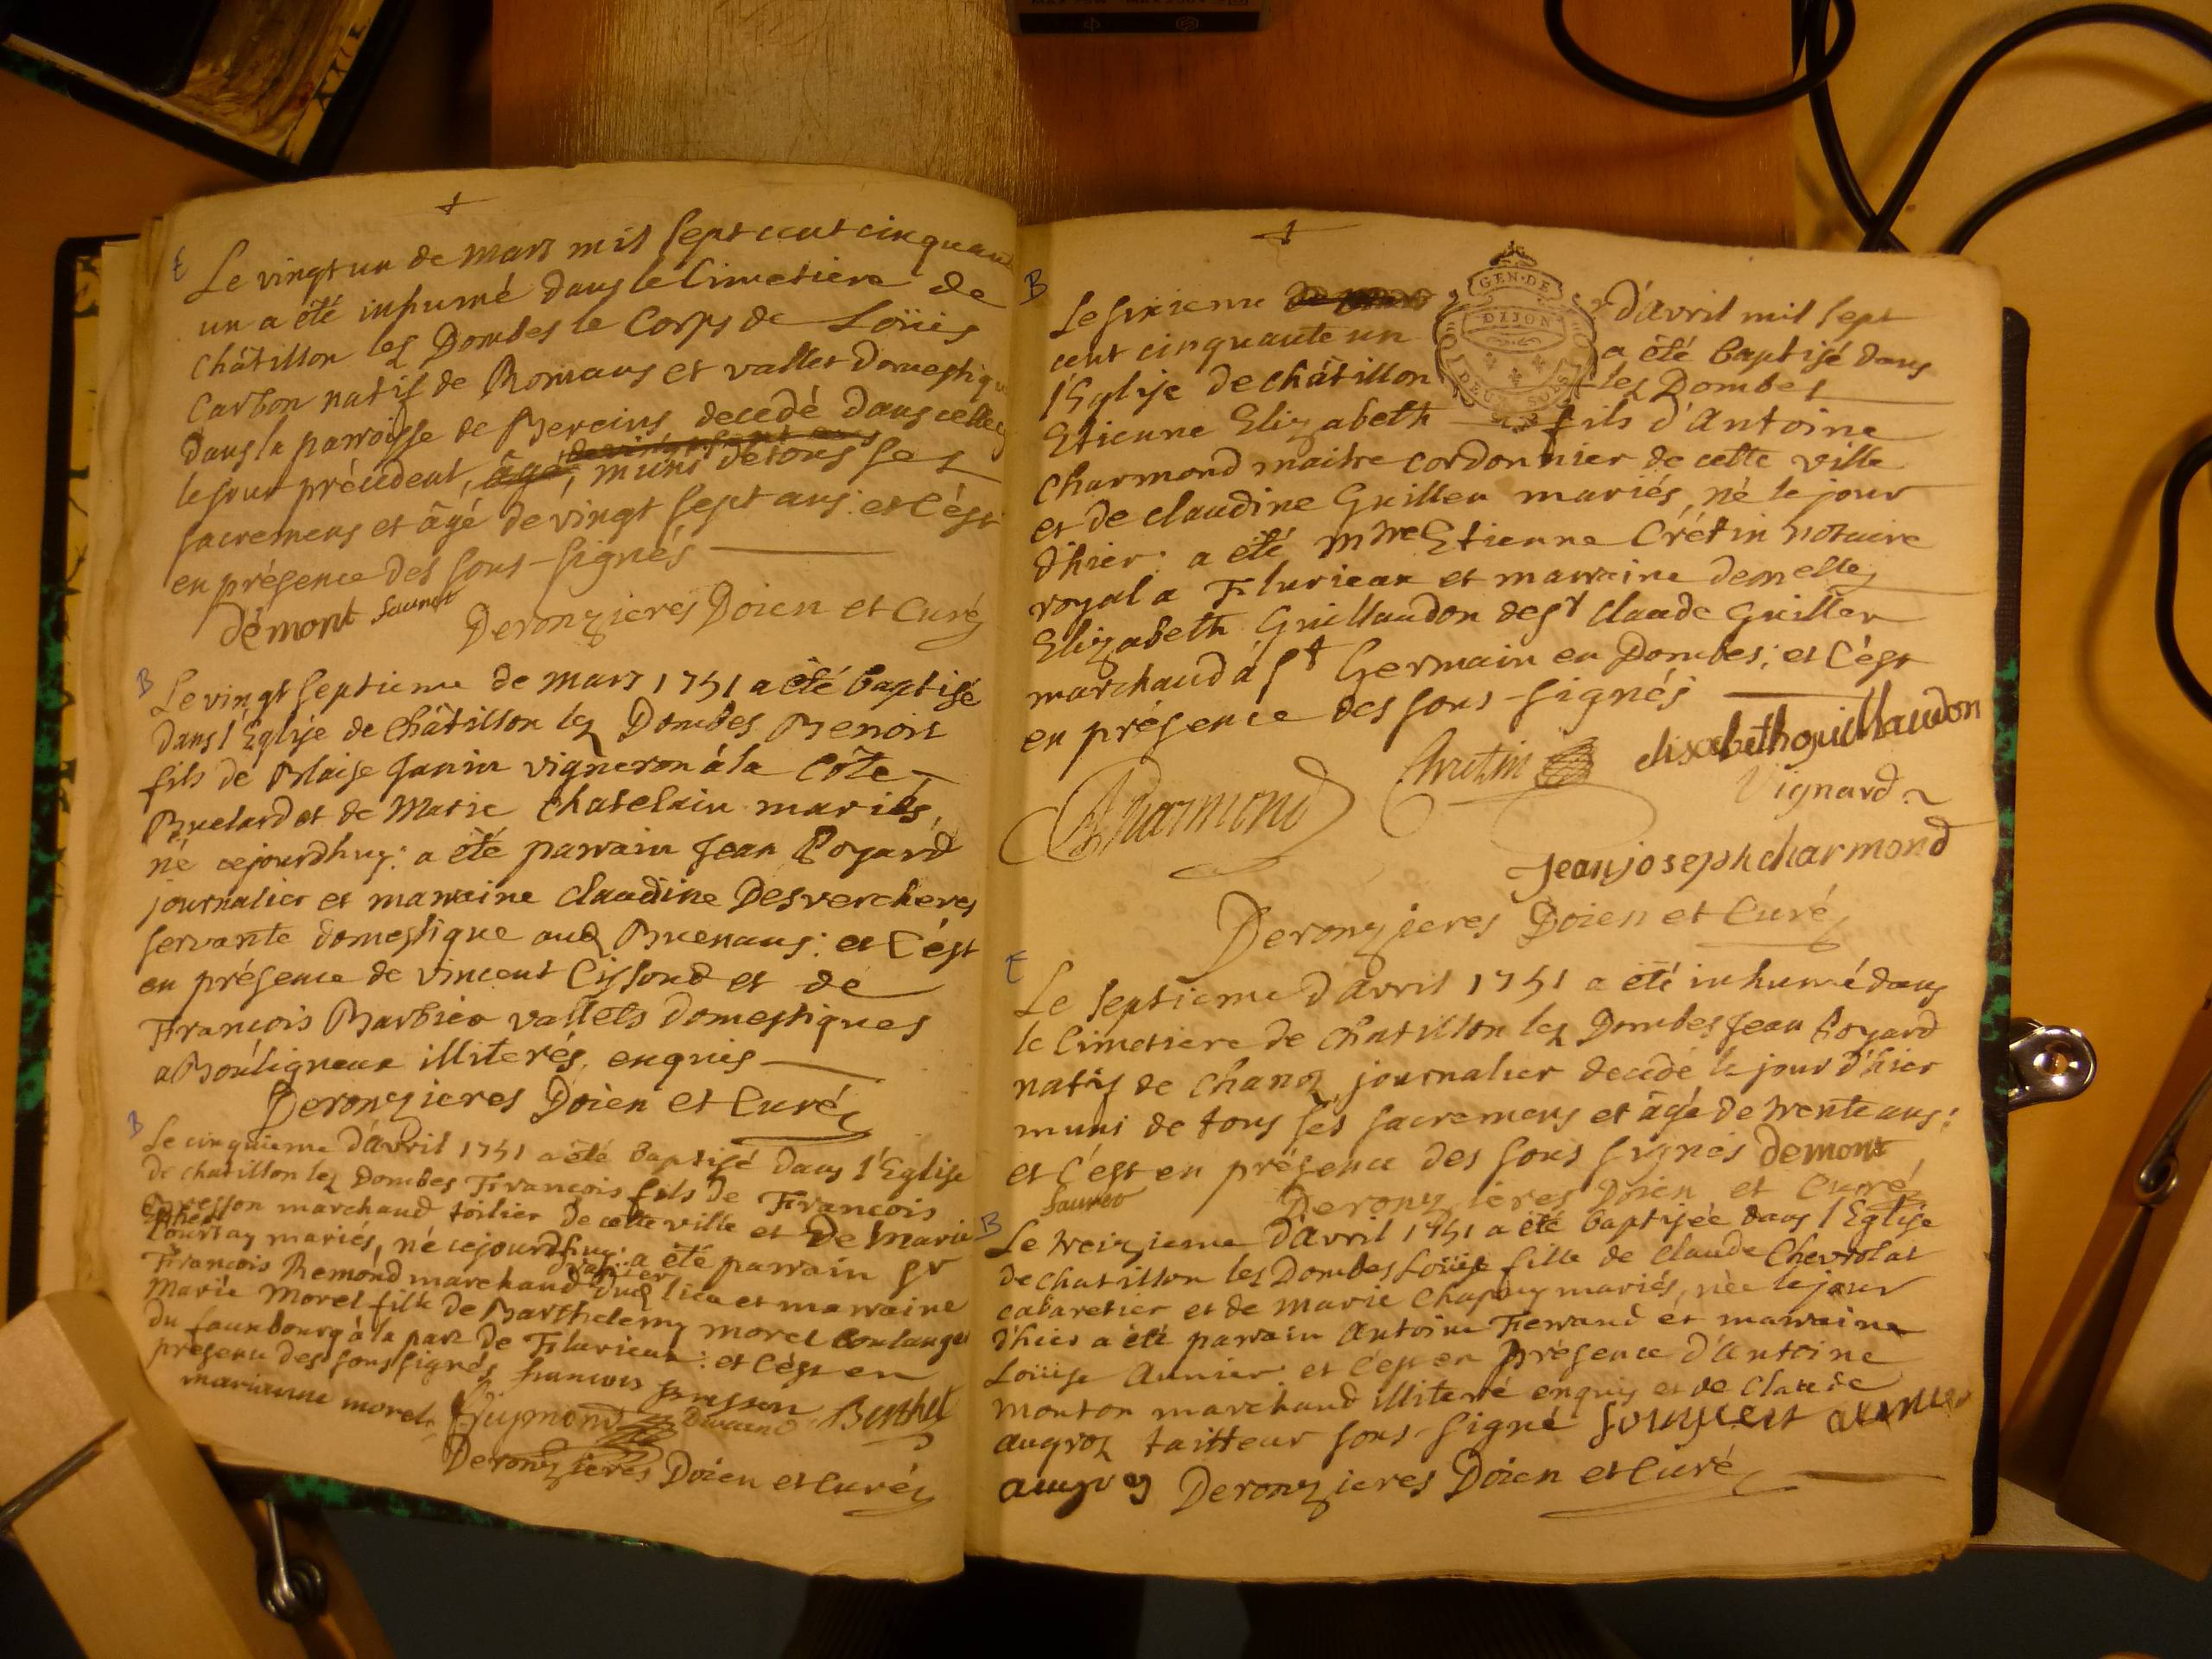 E
Le vingt un de mars mil sept cent cinquan
un a été inhumé dans le Cimetiere de
châtillon lez Dombes le Corps de Loüis
Carbon natif de Romans et vallet domestiqu
dans la parroisse de Bereins decedé dans celle cy
le jour précédent, âgé, muni de tous ses
sacremens et âgé de vingt sept ans: et C'ést
en présence des sous-signés
démont Saunet Deronzieres Doien et Curé
B
Le vingt septieme de mars 1751 a été baptisé
dans l'Eglise de châtillon lez Dombes Benoit
fils de Blaise Janin vigneron à la Côte
Buelard et de Marie Chatelain mariés,
né cejourdhuy: a été parrain Jean Poyard
journalier et marraine Claudine Desvercheres
servante domestique aux Buenans: et C'ést
en présence de vincent Cissoud et de
François Barbier vallets domestiques
a Bouligneux illiterés, enquis
Deronzieres Doien et Curé
B
Le cinquieme d'avril 1751 a été baptisé dans l'Eglise
de chatillon lez Dombes François fils de François
Bresson marchand toilier de cette ville et De Marie
mariés, né cejourdhuy: a été parrain sr
François Remond marchand drapier et marraine
Marie Morel fille de Barthelemy morel boulanger
du fauxbourg à la part de Flurieux: et C'ést en
présence des sous signés françois Bresson
marianne morel Reymond Durand Berthet
Deronzieres Doien et Curé
B
Le sixieme d'avril mil sept
cent cinquante un a été baptisé dans
l'Eglise de châtillon lez Dombes
Etienne Elizabeth fils d'Antoine
Charmond maitre cordonnier de cette ville
et de claudine Guiller mariés, né le jour
d'hier: a été Etienne Crétin notaire
royal a Flurieux et marraine demelle
Elizabeth Guillaudon de sr claude Guiller
marchand à St Germain en Dombes; et C'ést
en présence des sous-signés
GEN. DE
DIJON
DEUX SOLS
Charmond Chretin elisabeth guillaudon
Vignard
Jean joseph charmond
Deronzieres Doien et Curé
E
Le septieme d'avril 1751 a été inhumé dans
le Cimetiere de Chatillon lez Dombes Jean Poyard
natif de Chanoz journalier decédé le jour d'hier
muni de tous ses sacremens et âgé de trente ans:
et C'ést en présence des sous signés demont
Saunet Deronzieres Doien et Curé
B
Le treizieme d'avril 1751 a été baptisée dans l'Eglise
de chatillon les Dombes Loüise fille de claude Chevrolat
cabaretier et de Marie Chapuy mariés, née le jour
d'hier a été parrain Antoine Ferrand et marraine
Loüise Aunier: et C'ést en présence d'Antoine
Monton marchand illiteré enquis et de Claude
augroz tailleur sous-signé
augroz Deronzieres Doien et Curé